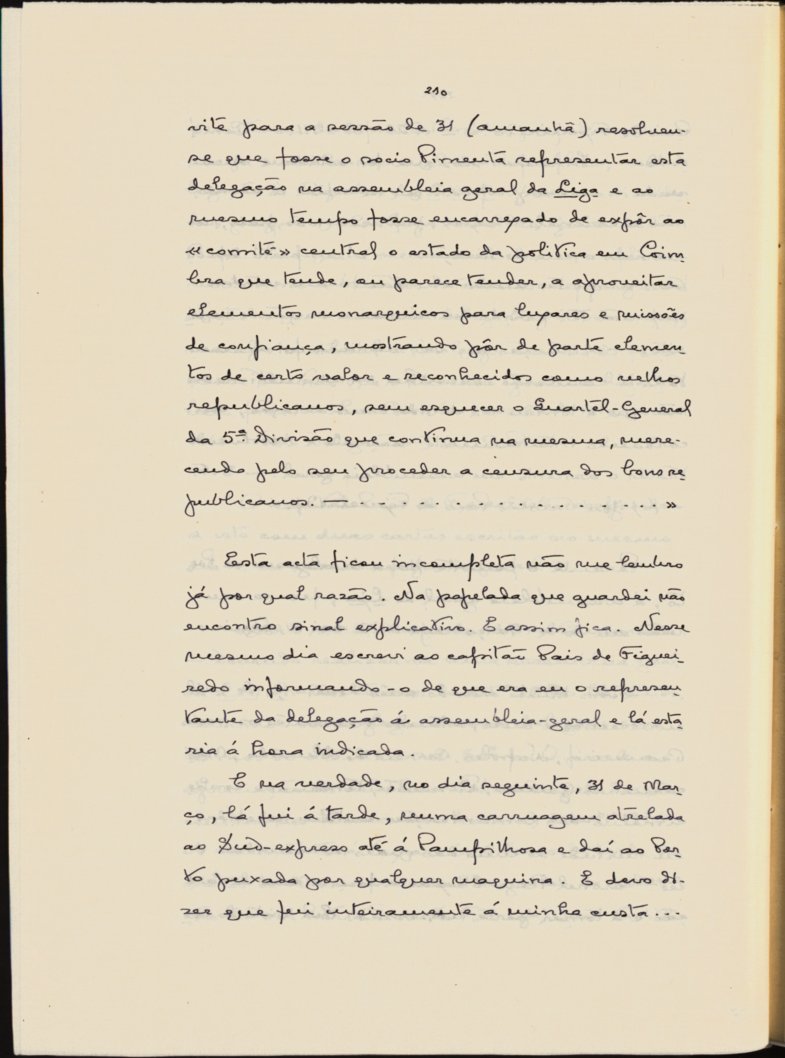 210
vite para a sessão de 31 (amanhã) resolveu-
se que fosse o socio Pimenta representar esta
delegação na assembleia geral da Liga e ao
mesmo tempo fosse encarregado de expôr ao
«comité» central o estado da politica em Coim-
bra que tende, ou parece tender, a aproveitar
elementos monarquicos para lugares e missões
de confiança, mostrando pôr de parte elemen-
tos de certo valor e reconhecidos como velhos
republicanos, sem esquecer o Quartel-General
da 5ª Divisão que continua na mesma, mere-
cendo pelo seu proceder a censura dos bons re-
publicanos. — . . . . . . . . . . . . . . . . . . »
Esta acta ficou incompleta não me lembro
já por qual razão. Na papelada que guardei não
encontro sinal explicativo. E assim fica. Nesse
mesmo dia escrevi ao capitão Pais de Figuei-
redo informando-o de que era eu o represen-
tante da delegação á assembleia-geral e lá esta-
ria á hora indicada.
E na verdade, no dia seguinte, 31 de Mar-
ço, lá fui á tarde, numa carruagem atrelada
ao Sud-expreso até á Pampilhosa e daí ao Por-
to puxada por qualquer maquina. E devo di-
zer que fui inteiramente á minha custa...